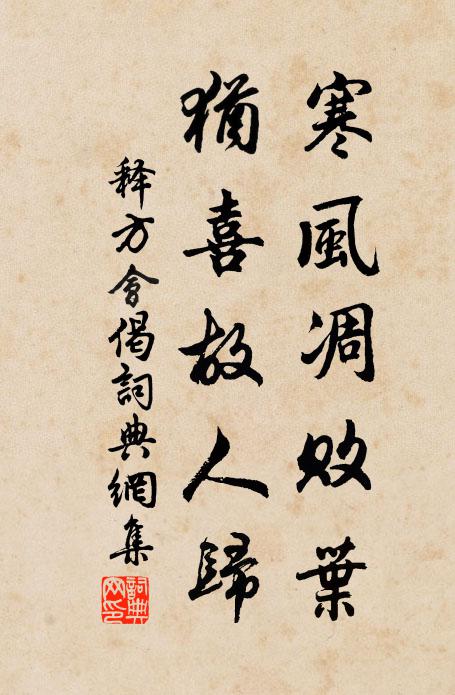 寒風凋敗葉
猶喜故人歸
释方會偈詞典網集
詞典网印